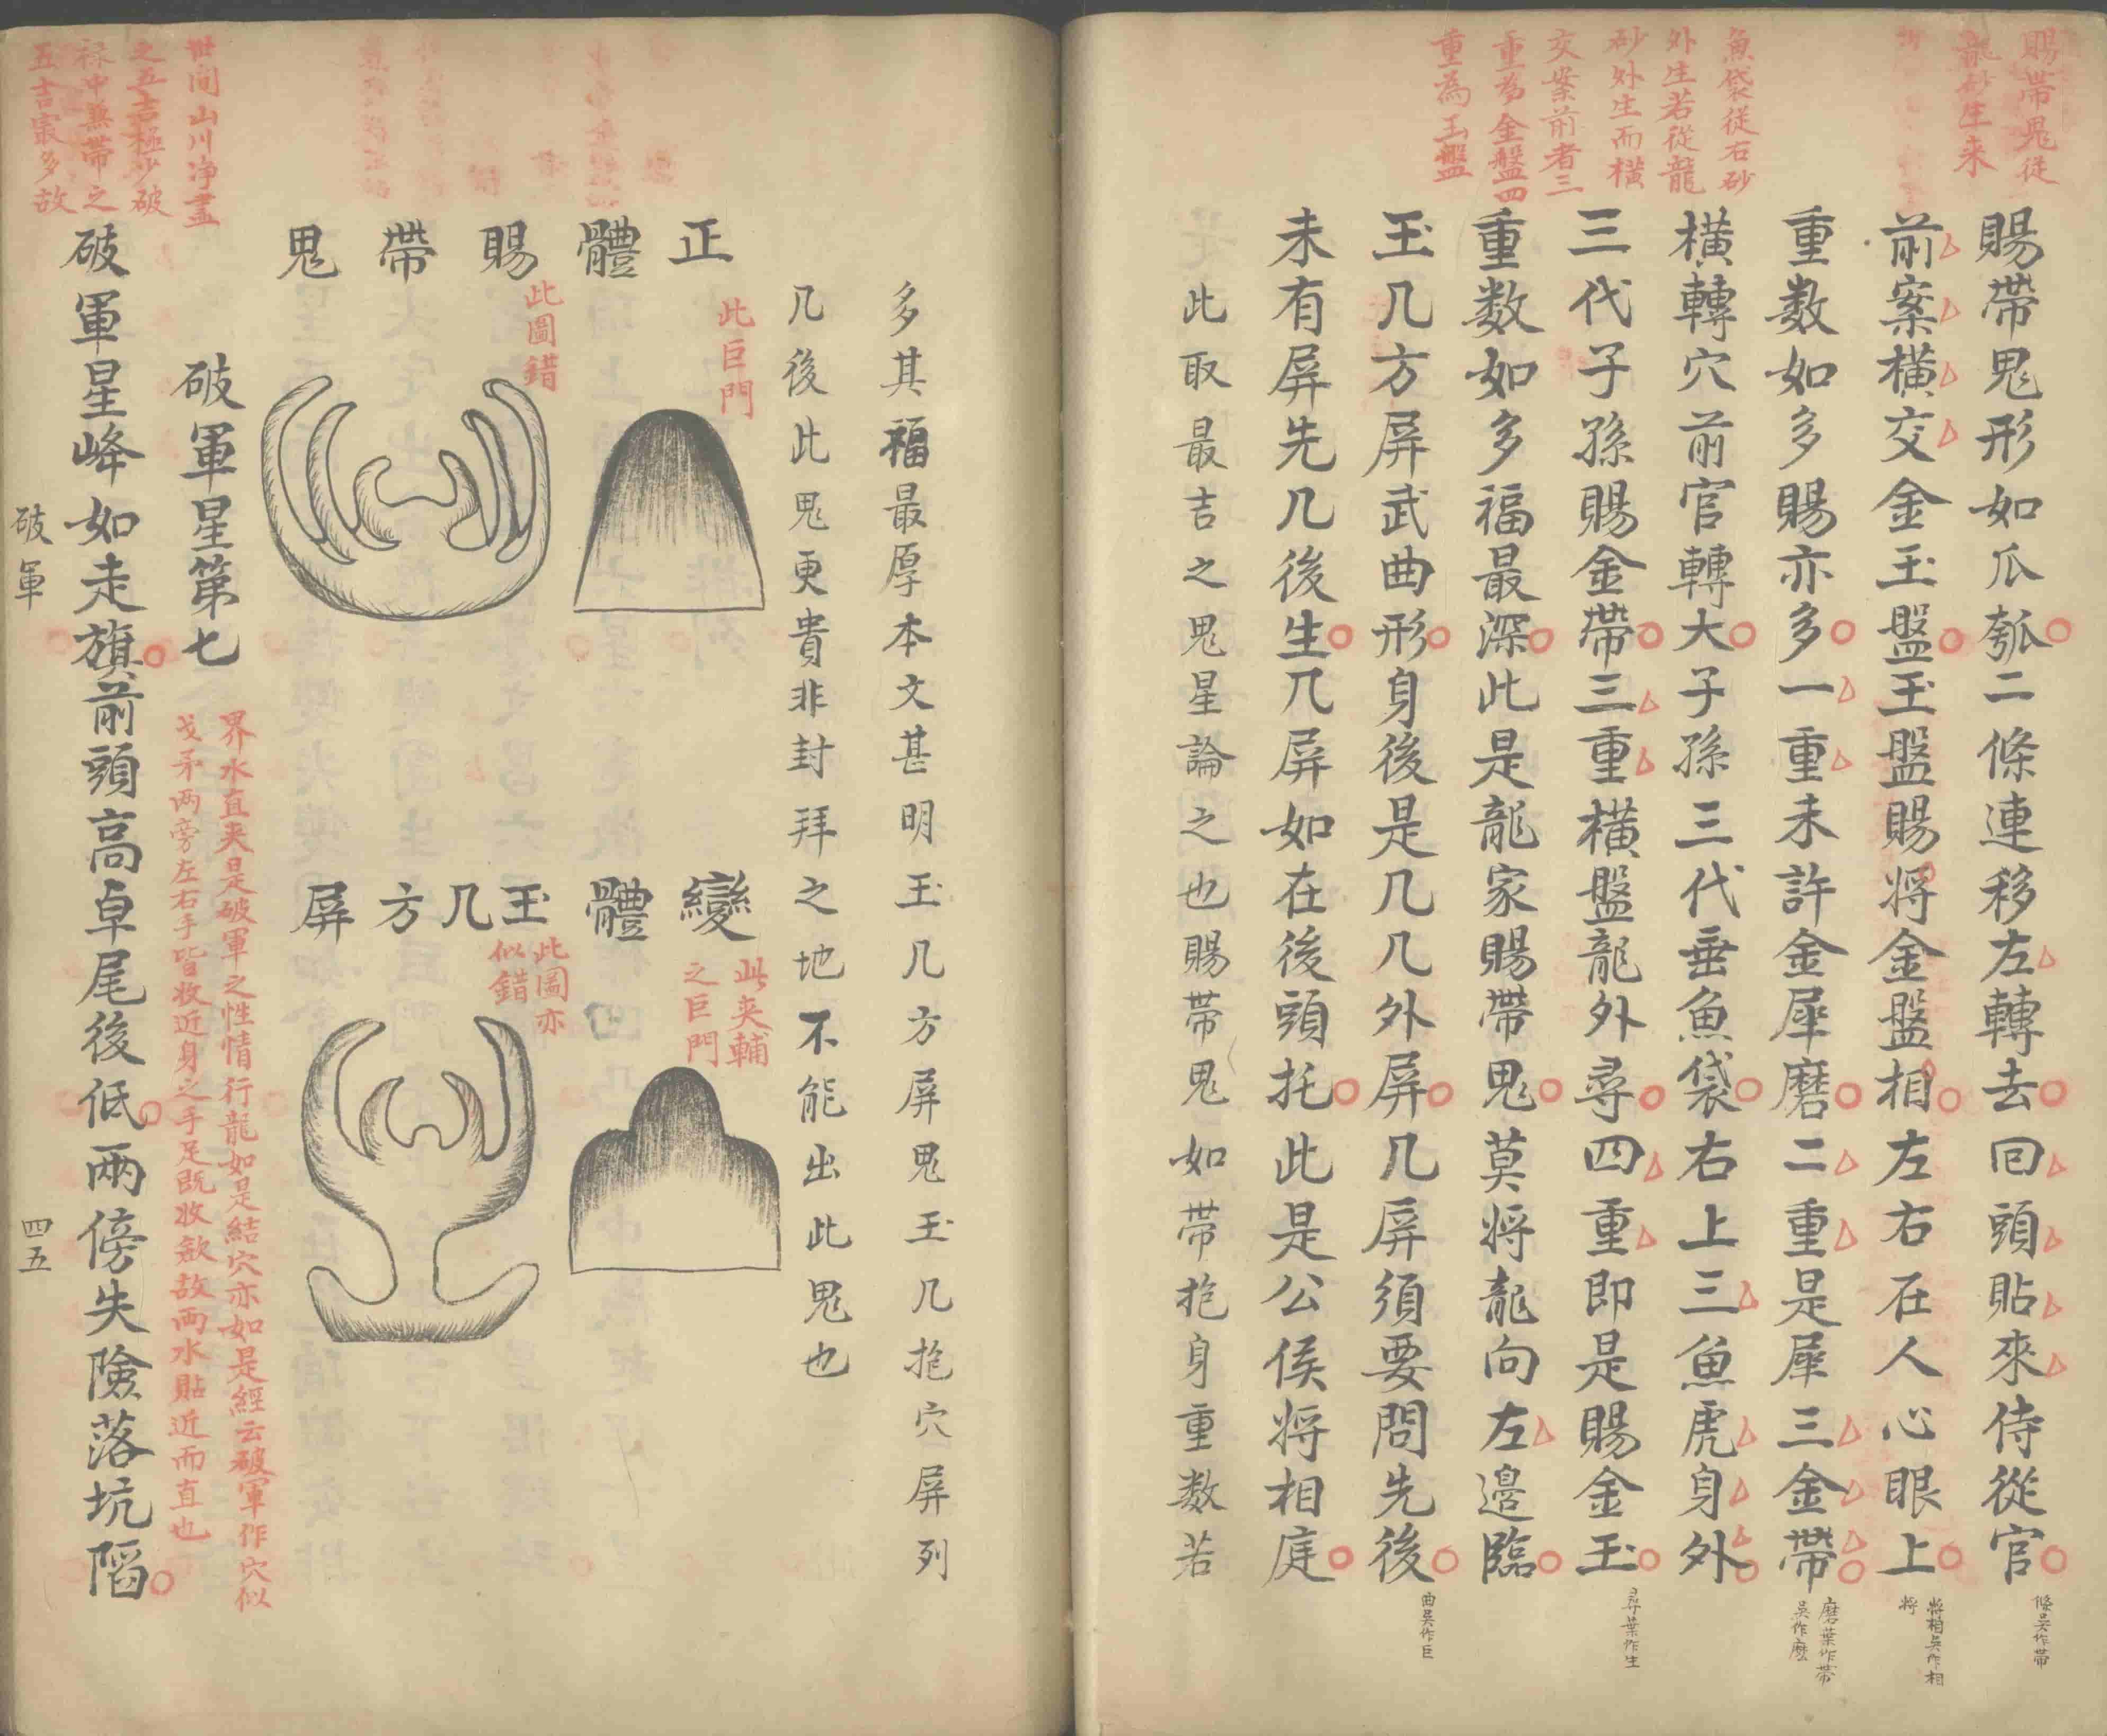 賜帶鬼從
龍砂生来
魚袋從右砂
外生若從龍
砂外生而横
交案前者三
重為金盤四
重為玉盤
賜帶鬼形如瓜瓠二條連移左轉去回頭貼來侍從官
前案橫交金玉盤玉盤賜将金盤相左右在人心眼上
重数如多賜亦多一重未許金犀磨二重是犀三金帶
橫轉穴前官轉大子孫三代垂魚袋右上三魚虎身外
三代子孫賜金帶三重橫盤龍外尋四重即是賜金玉
重数如多福最深此是龍家賜帶鬼莫将龍向左邊臨
玉几方屏武曲形身後是几几外屏几屏須要問先後
未有屏先几後生几屏如在後頭托此是公侯将相庭
此取最吉之鬼星論之也賜帶鬼如帶抱身重数若
條吴作帶
將相吴作相
将
磨葉作帶
吴作麽
尋葉作生
曲吴作巨
多其福最厚本文甚明玉几方屏鬼玉几抱穴屏列
几後此鬼更貴非封拜之地不能出此鬼也
正體賜帶鬼
此巨門
此圖錯
變體玉几方屏
此夹輔
之巨門
此圖亦
似錯
破軍星第七
界水直夹是破軍之性情行龍如是結穴亦如是經云破軍作穴似
戈矛两旁左右手皆收近身之手足既收斂故両水貼近而直也
世间山川净盡
之五吉極少破
禄中無帶之
五吉寂多故
破軍星峰如走旗前頭高卓尾後低兩傍失險落坑陷
破軍
四五